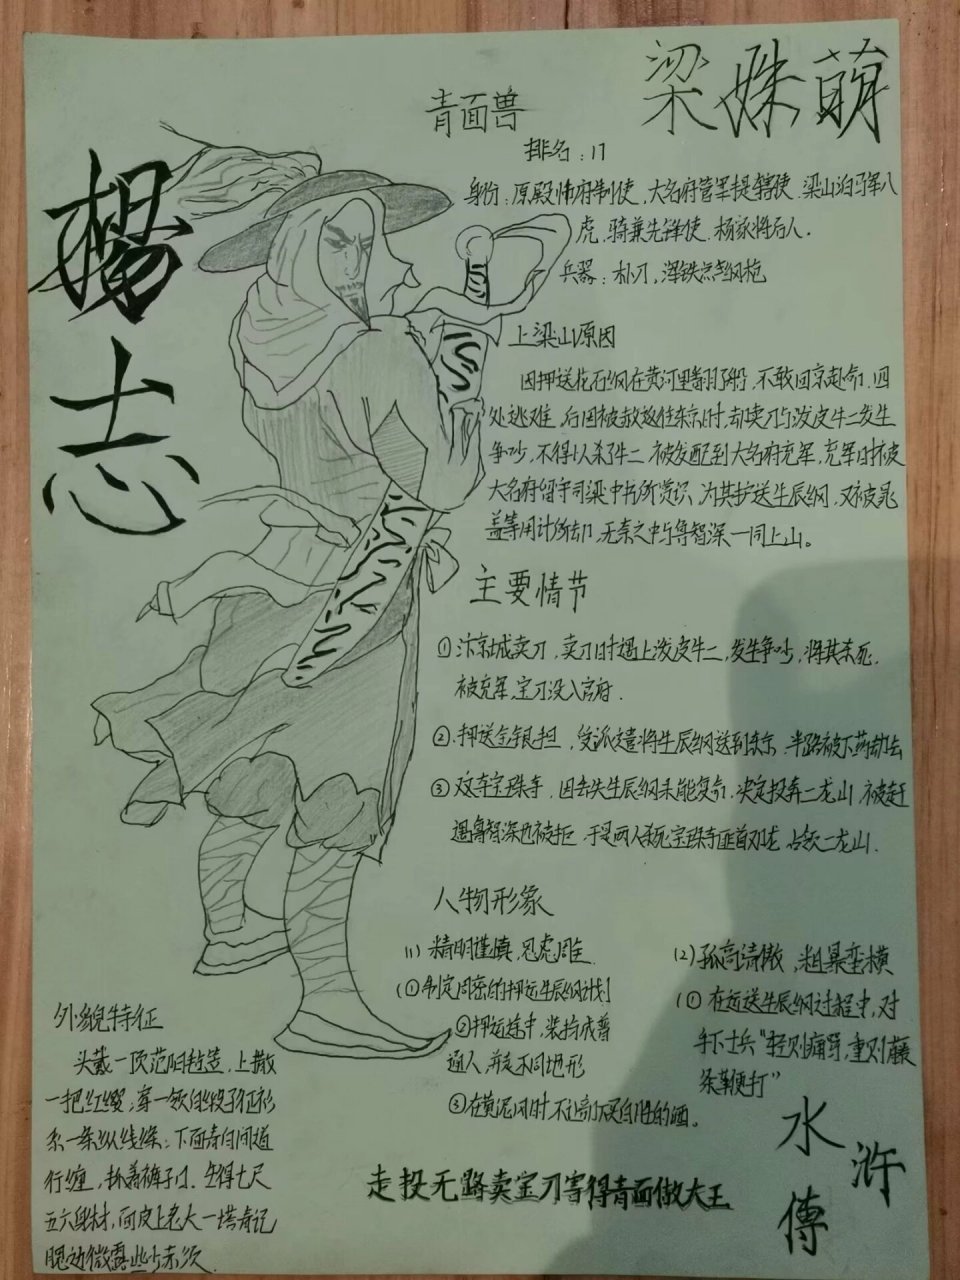 梁姝萌
青面兽
杨志
排名:17
身份:原殿帅府制使,大名府管军提辖使.梁山泊马军八
虎,骑兼先锋使.杨家将后人.
兵器:朴刀,浑铁点钢枪
上梁山原因
因押送花石纲在黄河里翻了船,不敢回京赴命,四
处逃难.后因被赦放往东京时,却卖刀与泼皮牛二发生
争吵,不得以杀了牛二 被发配到大名府充军,充军时被
大名府留守司梁中书所赏识,为其护送生辰纲,又被晁
盖等用计所劫,无奈之中与鲁智深一同上山。
主要情节
①汴京城卖刀,卖刀时遇上泼皮牛二,发生争吵,将其杀死.
被充军,宝刀没入官府.
②.押送金银担,受派遣将生辰纲送到东京 半路被下药劫去
③双夺宝珠寺,因丢失生辰纲未能复命.决定投奔二龙山,被赶
遇鲁智深也被拒 于是两人杀死宝珠寺匪首邓龙 占领二龙山.
人物形象
(1)精明谨慎,思虑周全
(①制定周密的押运生辰纲计划
②押运途中,装扮成普
通人,并走不同地形
③在黄泥冈时,不让高价买白胜的酒。
(2)孤高清傲,粗暴蛮横
(①在运送生辰纲过程中,对
手下士兵"轻则痛骂,重则藤
条鞭打"
外貌特征
头戴一顶范阳毡笠,上撒
一把红缨;穿一领白缎子征衫
系一条纵线绦;下面青白间道
行缠,抓着裤子口.生得七尺
五六身材,面皮上老大一搭青记
腮边微露些少赤须.
走投无路卖宝刀害得青面做大王
水浒傳